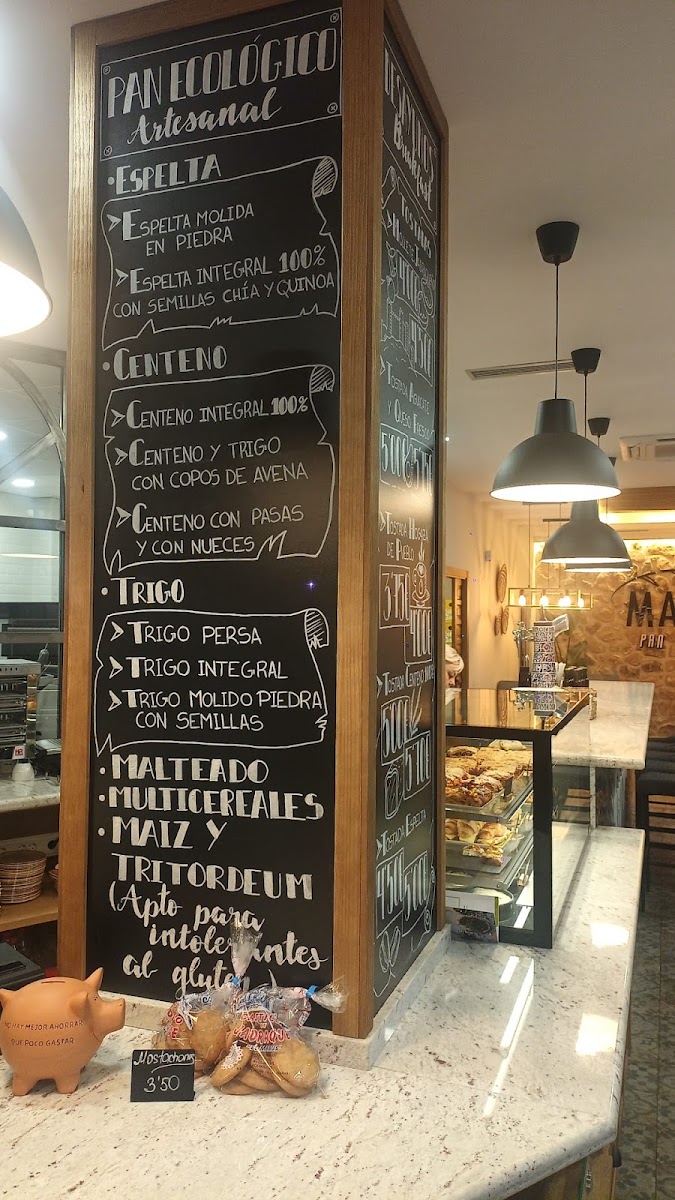 PAN ECOLÓGICO
Artesanal
• ESPELTA
➤ ESPELTA MOLIDA
EN PIEDRA
➤ ESPELTA INTEGRAL 100%
CON SEMILLAS CHÍA Y QUINOA
• CENTENO
➤ CENTENO INTEGRAL 100%
➤ CENTENO Y TRIGO
CON COPOS DE AVENA
➤ CENTENO CON PASAS
Y CON NUECES
• TRIGO
➤ TRIGO PERSA
➤ TRIGO INTEGRAL
➤ TRIGO MOLIDO PIEDRA
CON SEMILLAS
• MALTEADO
• MULTICEREALES
• MAIZ Y
TRITORDEUM
(Apto para
intolerantes
al gluten
Breakfast
TOSTADAS
TOSTADA AGUACATE
Y QUESO FRESCO
TOSTADA HOGAZA
DE PUEBLO
3'75€
4'00€
TOSTADA CENTENO
5'00€
TOSTADA ESPELTA
4'50€
5'00€
MA
PAN
NO HAY MEJOR AHORRAR
QUE POCO GASTAR
MOSTACHONES
3'50